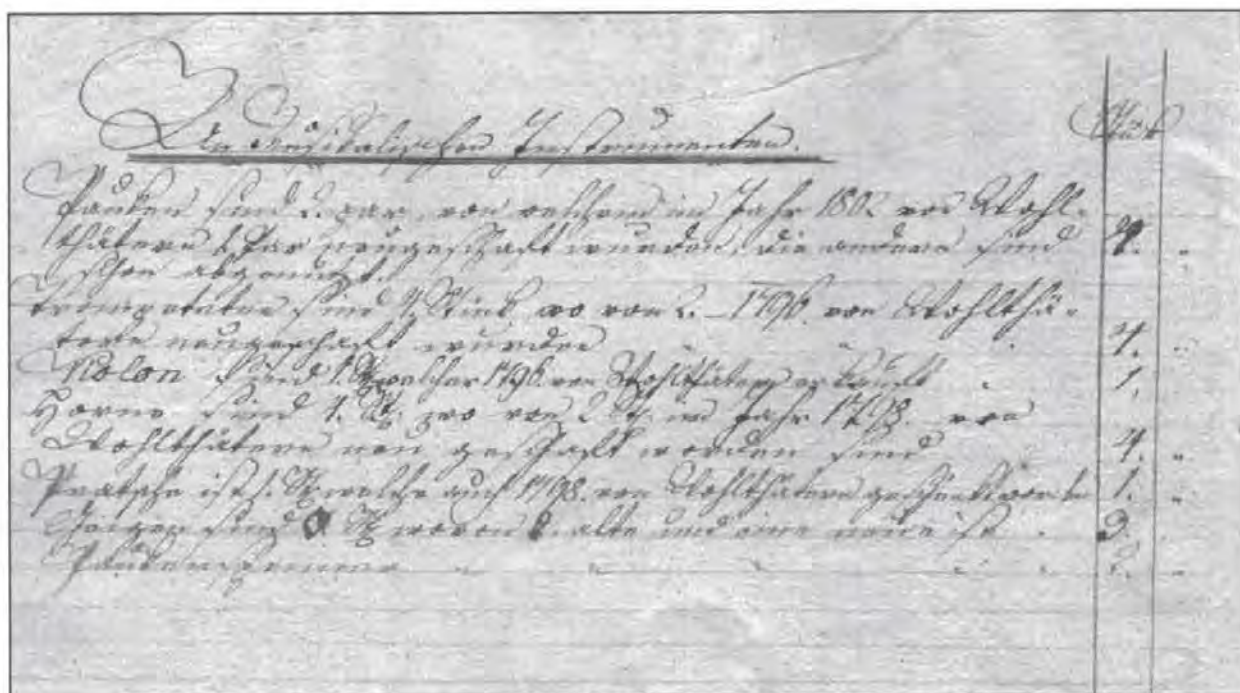 An Musikalischen Instrumenten. Stück
Pauken sind 2. par, von welchen im Jahr 180 von Wohl-
thätern 1. Par neugeschaft wurden, die andern sind 4. "
schon abgenuzt.
Trompeten sind 4. Stück wo von 2. 1796. von Wohlthä-
tern neugeschaft wurden " . 4. "
Violon sind 1. St. welcher 1796. von Wohlthätern erkauft . 1.
Horne sind 4. St. wo von 2 St. im Jahr 1798. von
Wohlthätern neu geschaft worden sind 4. "
Pratsche ist 1. St. welche auch 1798. von Wohlthätern geschenkt worden 1. "
Geigen sind St. wovon alte und eine neue ist . 3.
" " " " " "